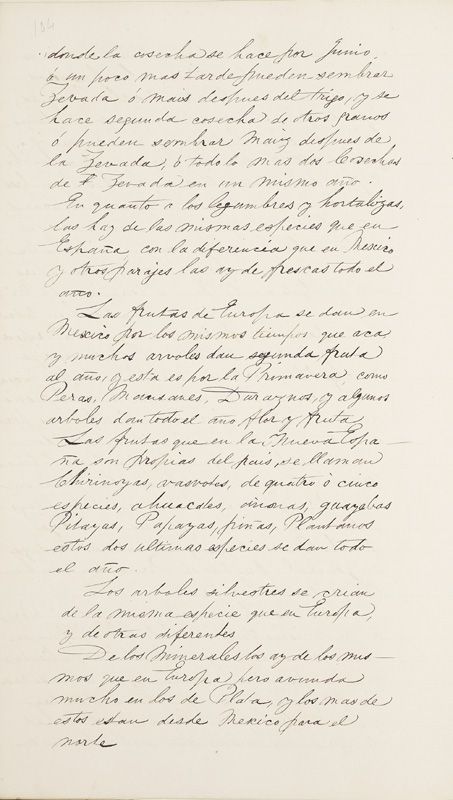 104
donde la cosecha se hace por Junio,
ó un poco mas tarde pueden sembrar
Zevada ó mais despues del trigo, y se
hace segunda cosecha de otros granos
ó pueden sembrar Maiz despues de
la Zevada, ó todo lo mas dos Cosechas
de Zevada en un mismo año.
En quanto a los legumbres y hortalizas,
las hay de las mismas especies que en
España con la diferencia que en Mexico
y otros parajes las ay de frescas todo el
año.
Las frutas de Europa se dan en
Mexico por los mismos tiempos que aca,
y muchos arvoles dan segunda fruta
al año, y esta es por la Primavera, como
Peras, Mansanas, Duraznos, y algunos
arboles dan todo el año flor y fruta
Las frutas que en la Nueva Espa-
ña son propias del pais, se llaman
Chirinoyas, de quatro ó cinco
especies, ahuacates, anonas, guayabas
Pitayas, Papayas, piñas, Plantanos
estos dos ultimas especies se dan todo
el año.
Los arboles silvestres se crian
de la misma especie que en Europa,
y de otras diferentes
De los Minerales los ay de los mis-
mos que en Europa pero avunda
mucho en los de Plata, y los mas de
estos estan desde Mexico para el
norte